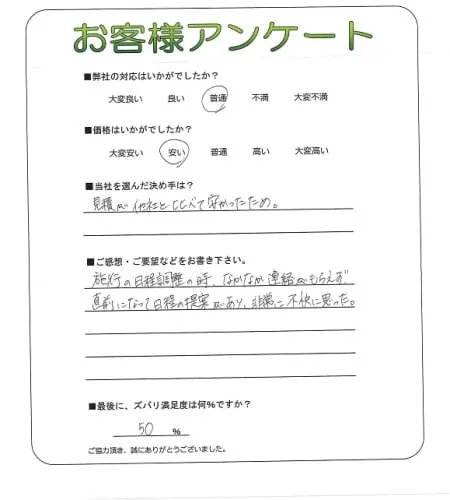 お客様アンケート
■弊社の対応はいかがでしたか？
大変良い 良い 普通 不満 大変不満
■価格はいかがでしたか？
大変安い 安い 普通 高い 大変高い
■当社を選んだ決め手は？
見積が他社とくらべて安かったため。
■ご感想・ご要望などをお書き下さい。
施行の日程調整の時、なかなか連絡がもらえず、
直前になって日程の提案があり、非常に不快に思った。
■最後に、ズバリ満足度は何％ですか？
50 ％
ご協力頂き、誠にありがとうございました。